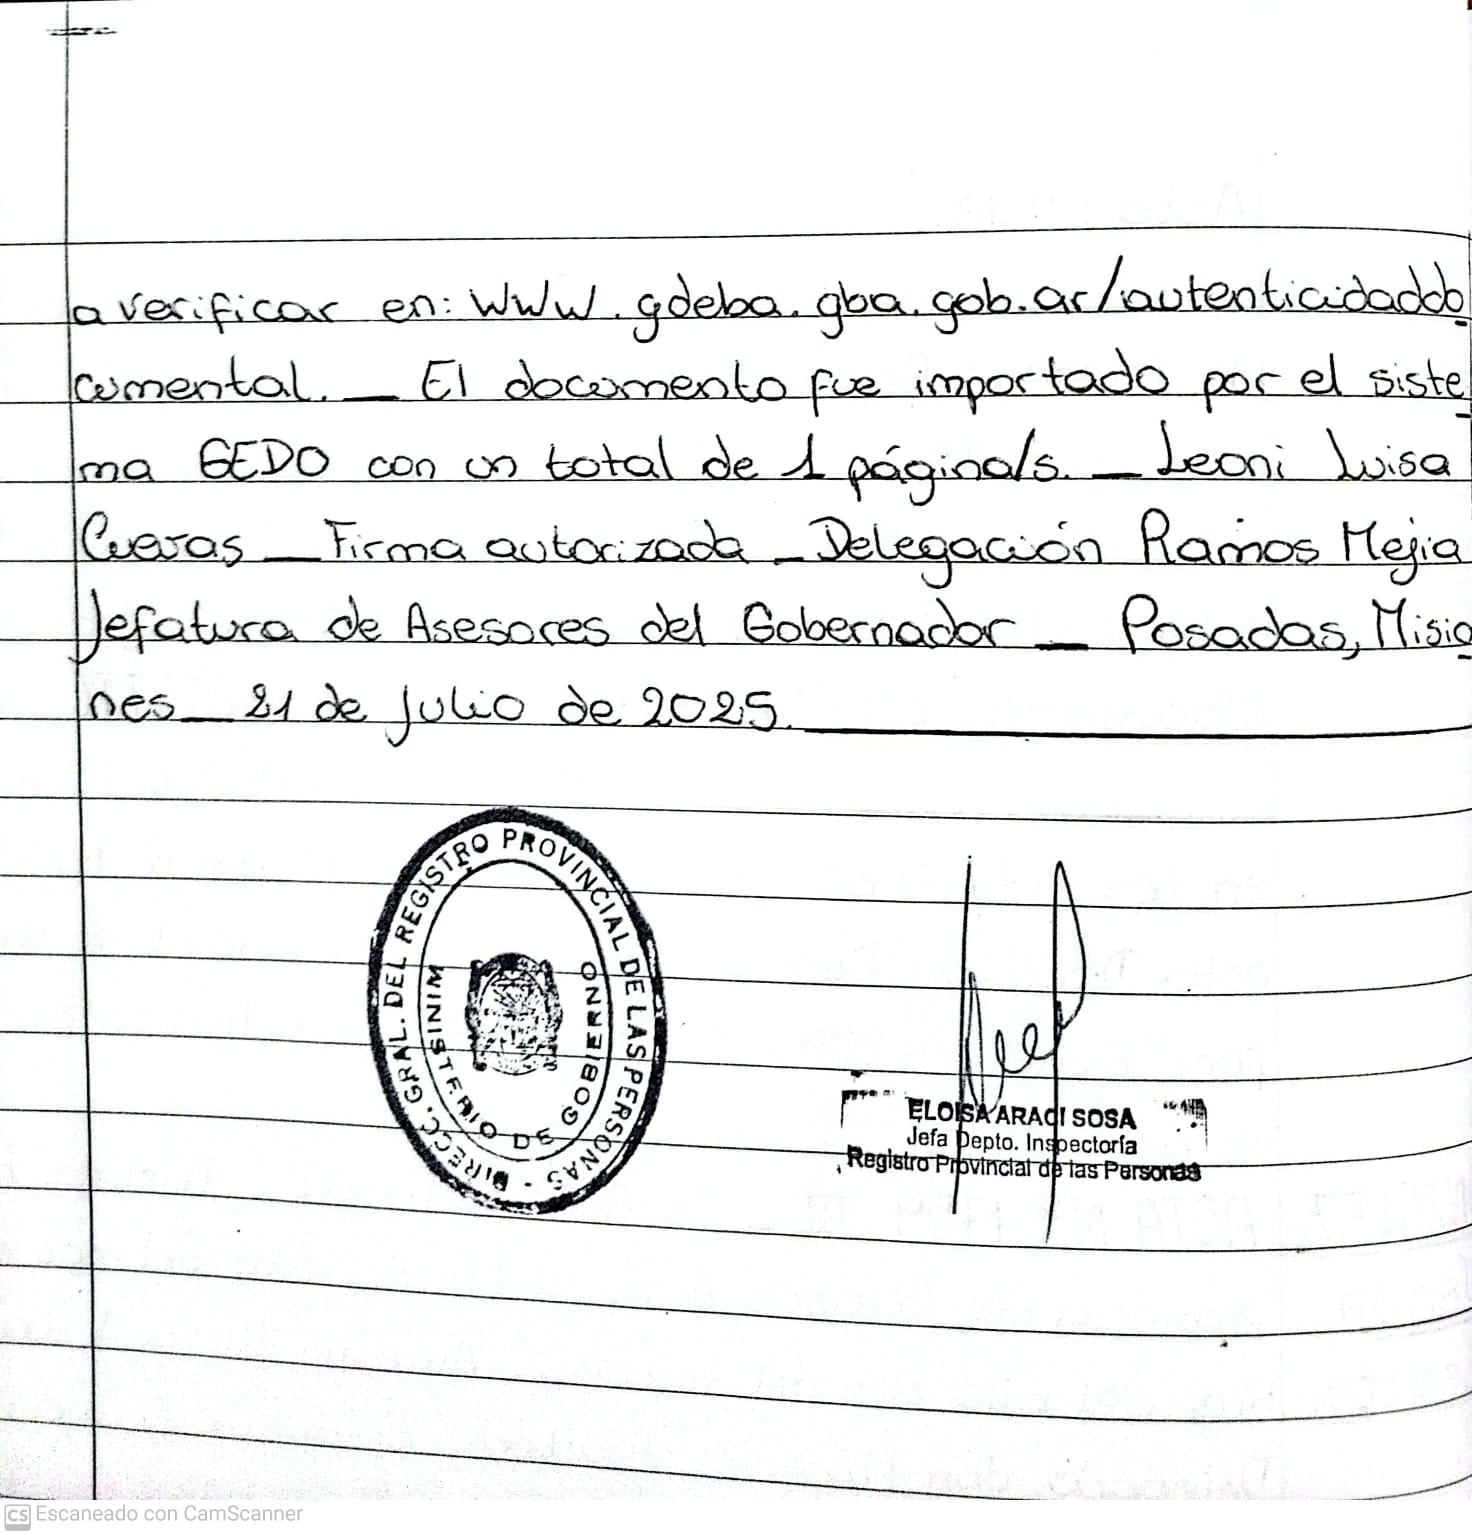 a verificar en: www.gdeba.gba.gob.ar/autenticidaddo
cumental. _ El documento fue importado por el siste
ma GEDO con un total de 1 página/s. _ Leoni Luisa
Cuevas _ Firma autorizada _ Delegación Ramos Mejia
Jefatura de Asesores del Gobernador _ Posadas, Misio
nes _ 21 de julio de 2025.
DIRECC. GRAL. DEL REGISTRO PROVINCIAL DE LAS PERSONAS -
MINISTERIO DE GOBIERNO
ELOISA ARACI SOSA
Jefa Depto. Inspectoría
Registro Provincial de las Personas
CS Escaneado con CamScanner